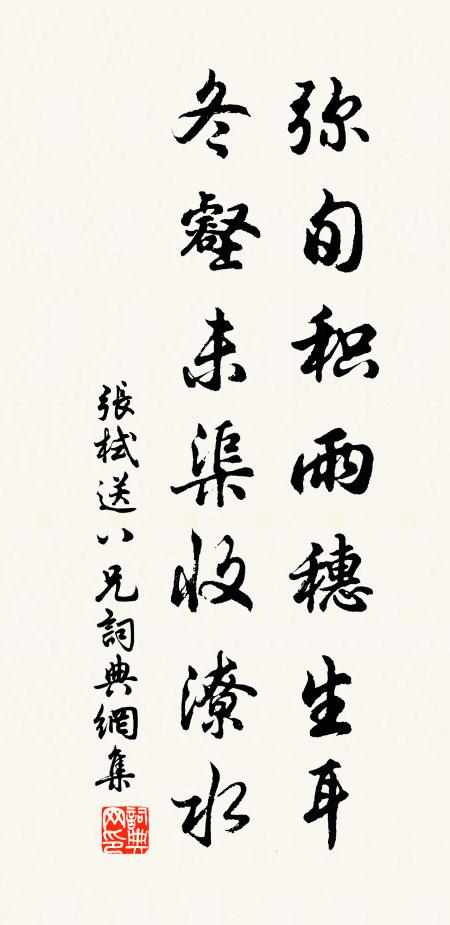 弥旬积雨穗生耳
冬壑未渠收潦水
張栻送八兄詞典網集
詞典网印